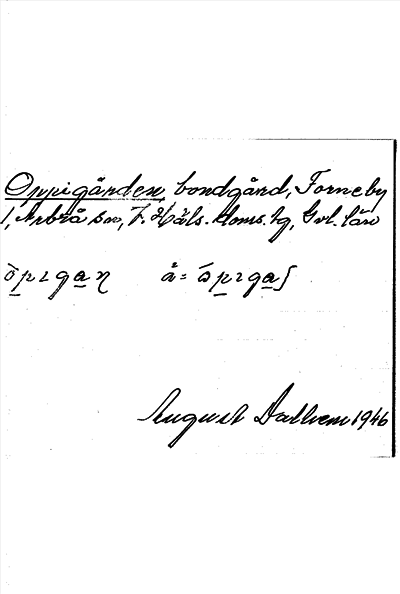 Oppigården, bondgård, Forneby
1, Arbrå sn, V. Häls. doms. hg, Gvl. län
òpɪgaꞑ å = ápɪgaʃ
August Dalhem 1946